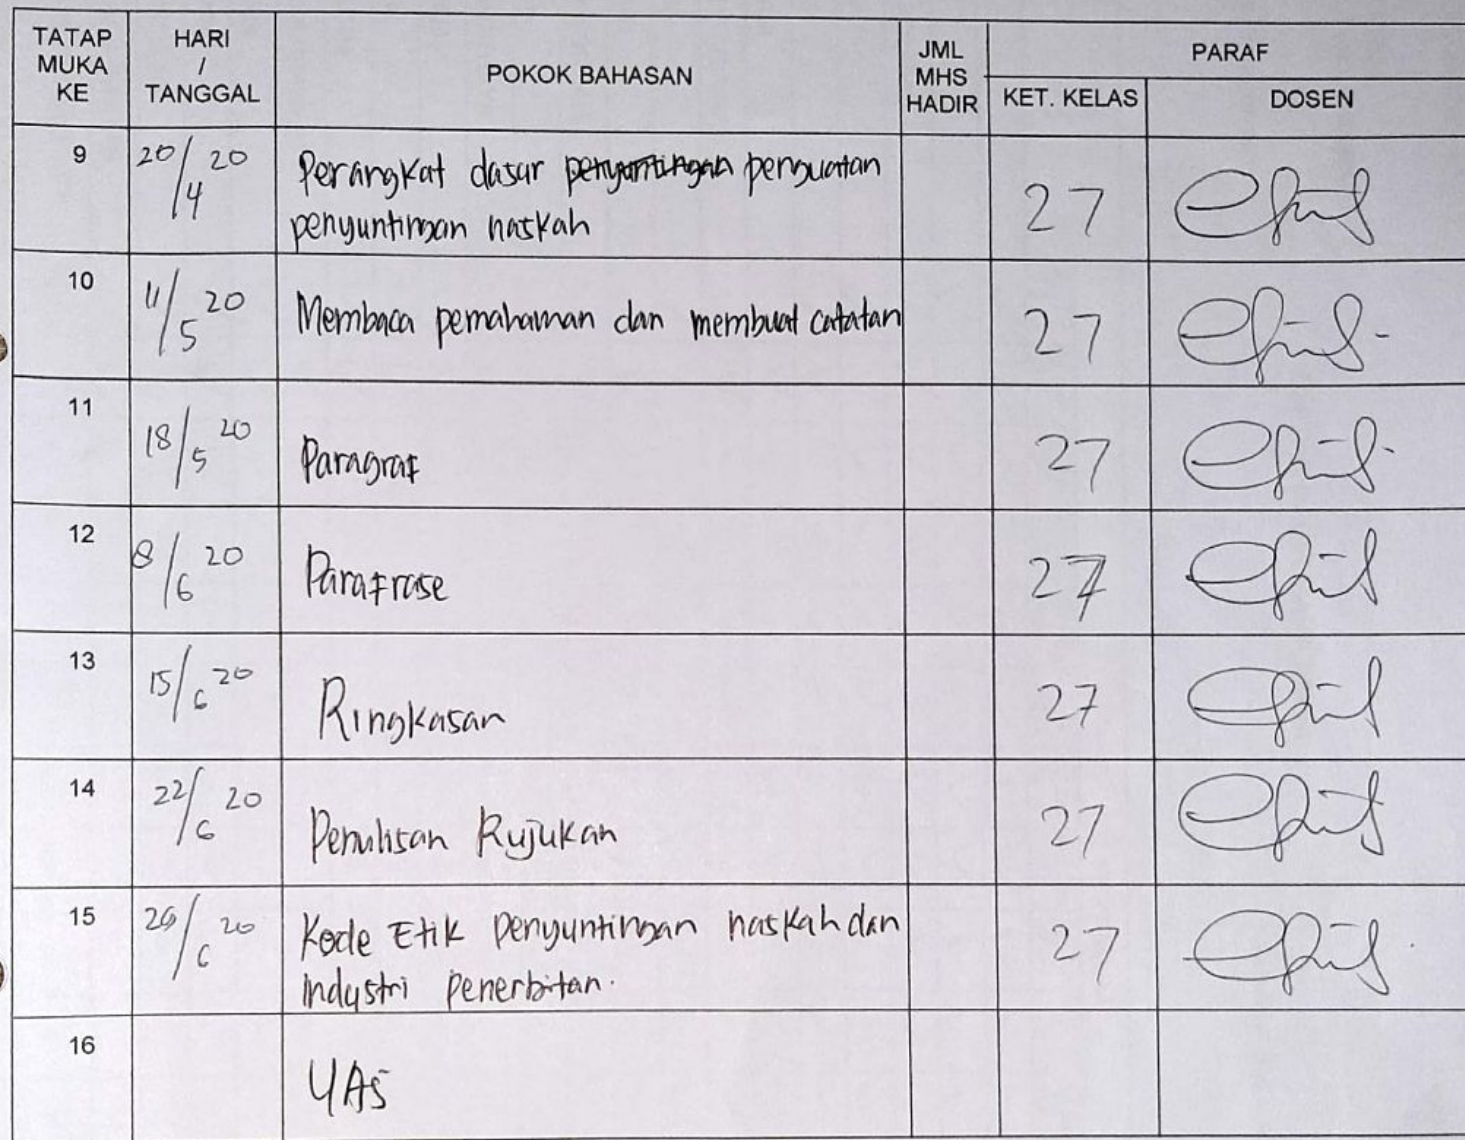 TATAP MUKA KE
HARI / TANGGAL
POKOK BAHASAN
JML MHS HADIR
PARAF
KET. KELAS
DOSEN
9
20/4 20
Perangkat dasar penguatan
penyuntingan naskah
27
10
11/5 20
Membaca pemahaman dan membuat catatan
27
11
18/5 20
Paragraf
27
12
8/6 20
Parafrase
27
13
15/6 20
Ringkasan
27
14
22/6 20
Penulisan Rujukan
27
15
/6 20
Kode Etik Penyuntingan naskah dan
industri penerbitan.
27
16
UAS